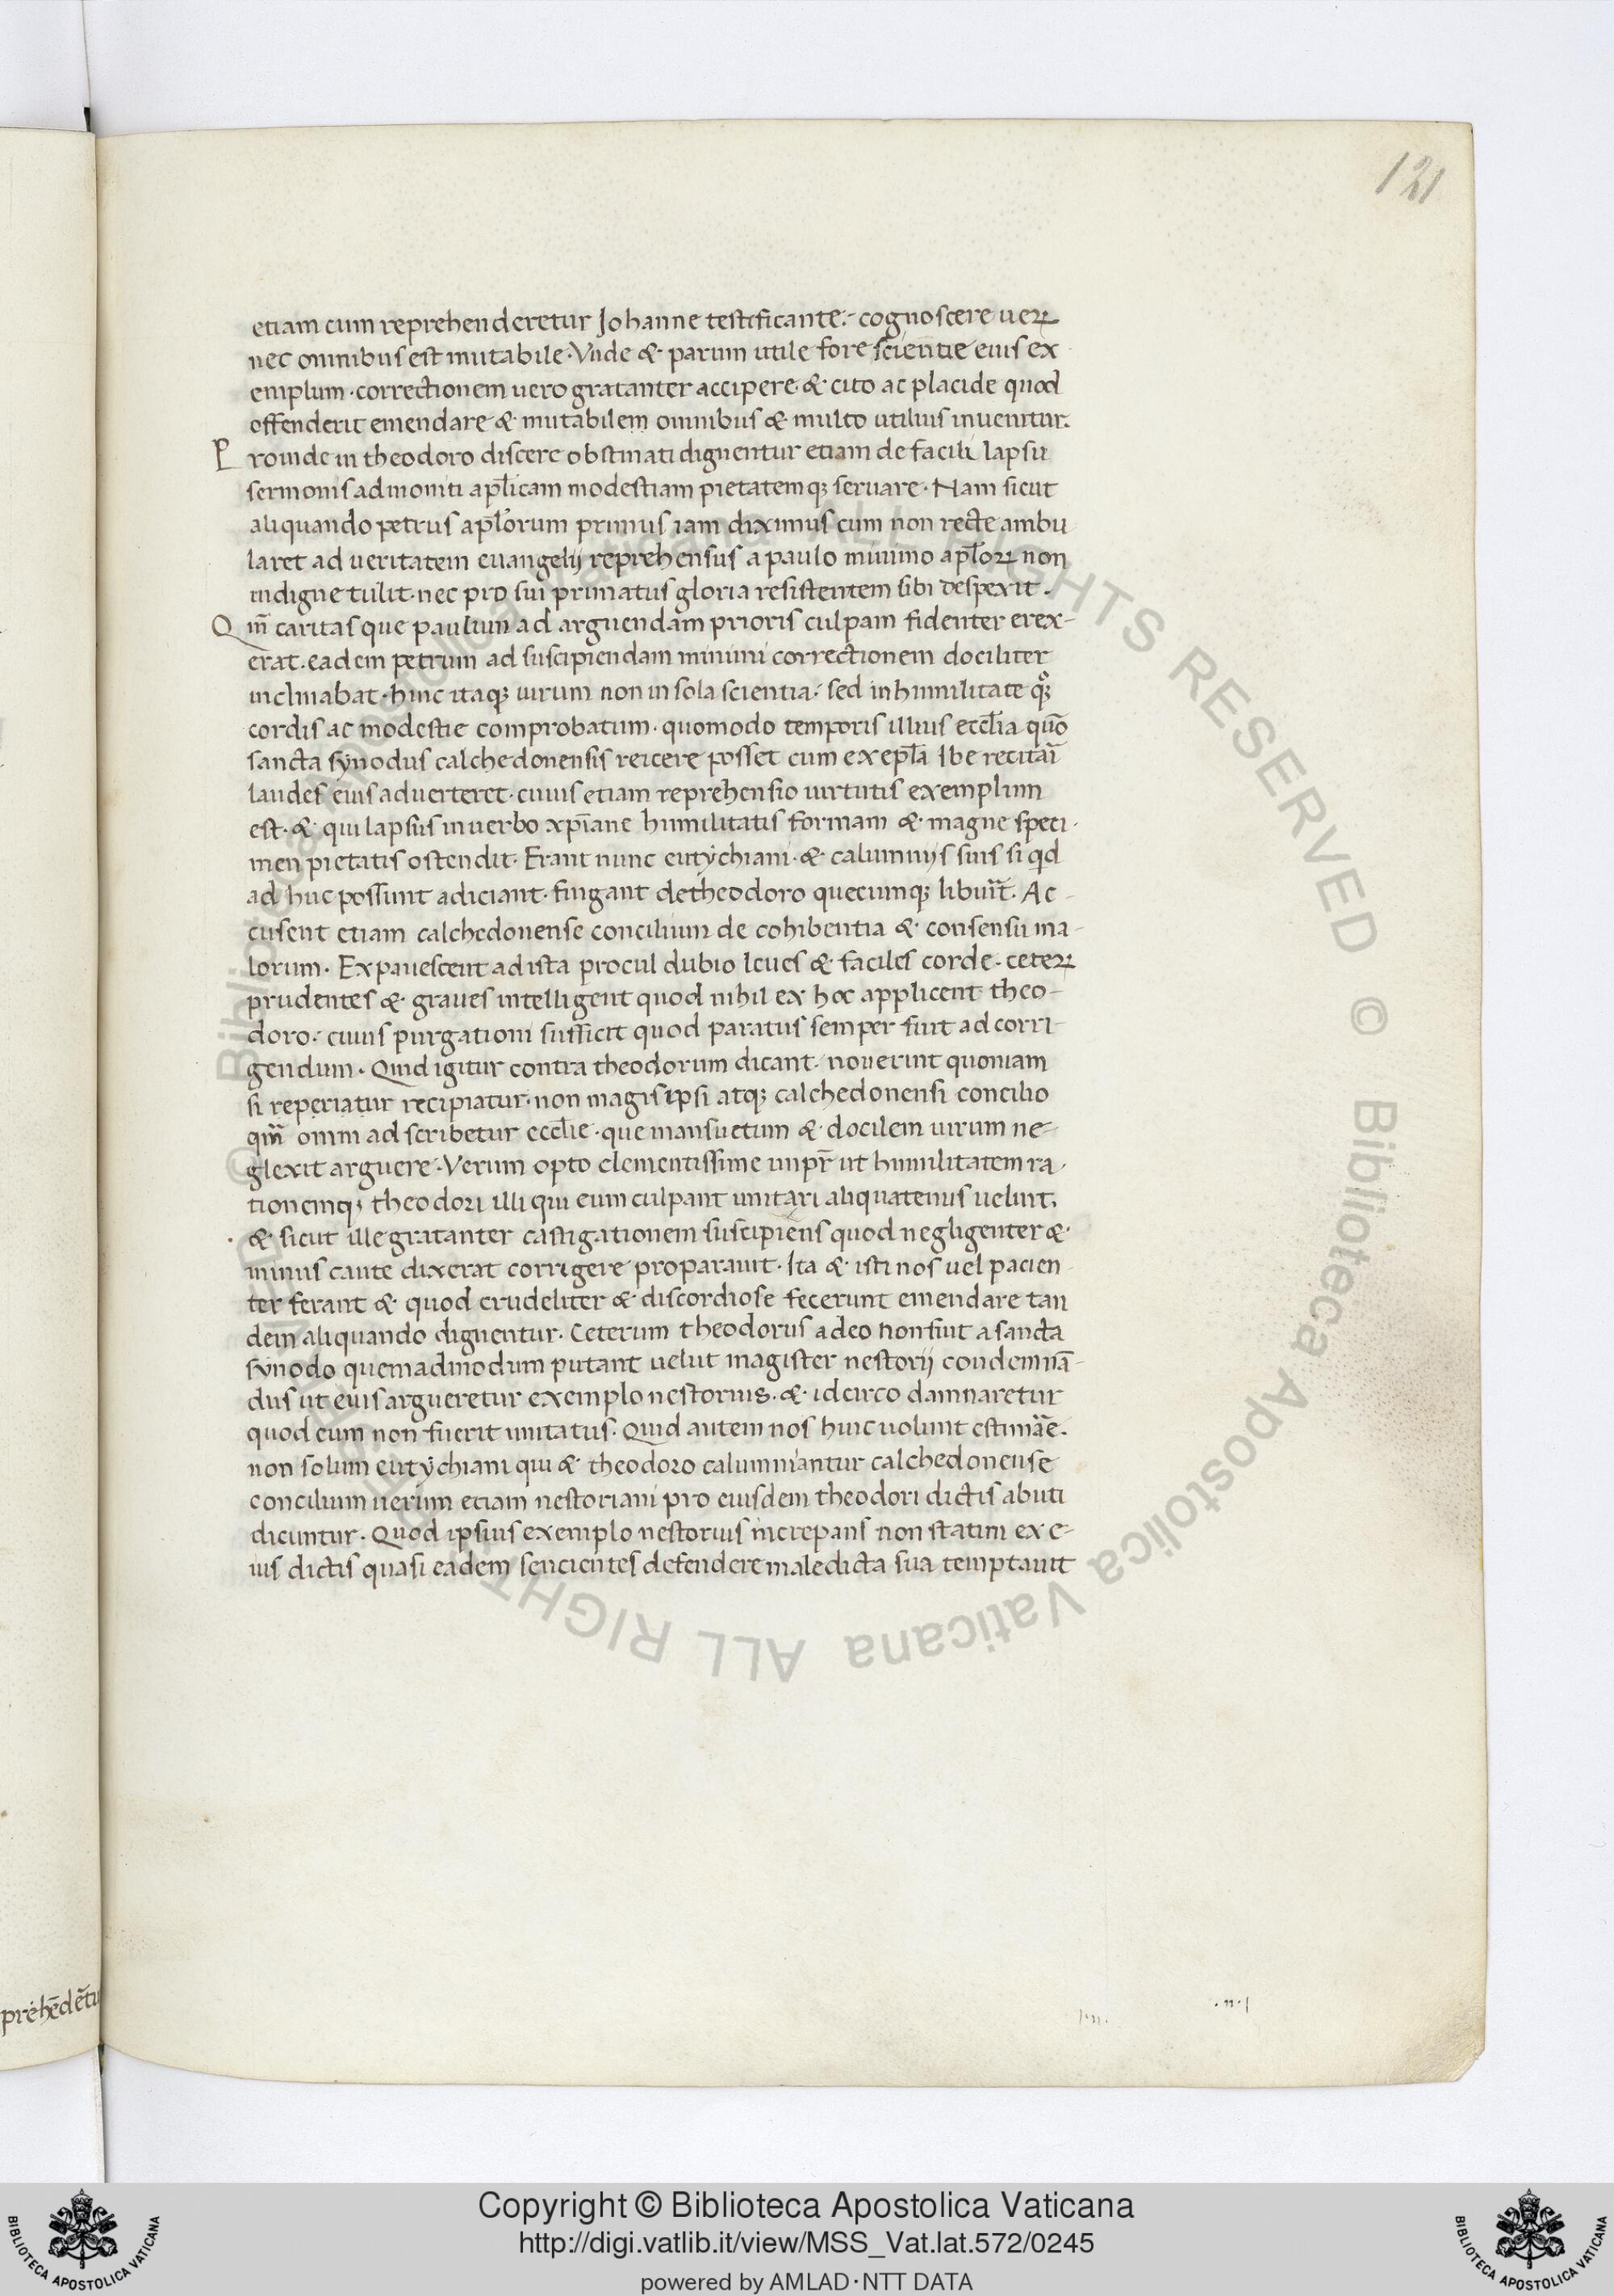 121
etiam cum reprehenderetur Johanne testificante·- cognoscere ueꝝ
nec omnibus est imitabile · Vnde & parum utile fore scientie eius ex
emplum · correctionem uero gratanter accipere & cito ac placide quod
offenderit emendare & imitabilem omnibus & multo utilius inuenitur.
Proinde in theodoro discere obstinati dignentur etiam de facili lapsu
sermonis admoniti apl̅icam modestiam pietatemqꝫ seruare · Nam sicut
aliquando petrus apl̅orum primus iam diximus cum non recte ambu
laret ad ueritatem euangelij reprehensus a paulo minimo apl̅oꝝ non
indigne tulit · nec pro sui primatus gloria resistentem sibi despexit ·
Qm̅ caritas que paulum ad arguendam prioris culpam fidenter erex-
erat · eadem petrum ad suscipiendam minimi correctionem dociliter
inclinabat · hinc itaqꝫ uirum non in sola scientia · sed in humilitate qꝫ
cordis ac modestie comprobatum · quomodo temporis illius eccl̅ia quo̅
sancta synodus calchedonensis reicere posset cum ex epl̅a Ibe recitari̅
laudes eius aduerteret · cuius etiam reprehensio uirtutis exemplum
est · & qui lapsus in uerbo xp̅iane humilitatis formam & magne speci ·
men pietatis ostendit · Erant nunc eutychiani · & calumnijs suis si qd
ad huc possunt adiciant · fingant de theodoro quecumqꝫ libuit̅ · Ac -
cusent etiam calchedonense concilium de cohibentia & consensu ma -
lorum · Expauescent ad ista procul dubio leues & faciles corde · ceteꝝ
prudentes & graues intelligent quod nihil ex hoc applicent theo-
doro · cuius purgationi sufficit quod paratus semper fuit ad corri-
gendum · Quid igitur contra theodorum dicant · nouerint quoniam
si reperiatur recipiatur · non magis ipsi atqꝫ calchedonensi concilio
qm̅ omni adscribetur eccl̅ie · que mansuetum & docilem uirum ne-
glexit arguere · Verum opto clementissime impr̅ ut humilitatem ra ·
tionemqꝫ theodori illi qui eum culpant imitari aliquatenus uelint,
· & sicut ille gratanter castigationem suscipiens quod negligenter & ·
minus caute dixerat corrigere proparauit · Ita & isti nos uel pacien
ter ferant & quod crudeliter & discordiose fecerunt emendare tan
dem aliquando dignentur · Ceterum theodorus adeo non fuit a sancta
synodo quemadmodum putant uelut magister nestorij condemna̅-
dus ut eius argueretur exemplo nestorius · & idcirco damnaretur
quod eum non fuerit imitatus · Quid autem nos hinc uolunt estima̅e ·
non solum eutychiani qui & theodoro calumniantur calchedonense
concilium uerum etiam nestoriani pro eiusdem theodori dictis abuti
dicuntur · Quod ipsius exemplo nestorius increpans non statim ex e-
ius dictis quasi eadem sencientes defendere maledicta sua temptauit
prehe̅de̅tu
© Biblioteca Apostolica Vaticana ALL RIGHTS RESERVED © Biblioteca Apostolica Vaticana ALL RIGHT
Copyright © Biblioteca Apostolica Vaticana
http://digi.vatlib.it/view/MSS_Vat.lat.572/0245
powered by AMLAD · NTT DATA
BIBLIOTECA APOSTOLICA VATICANA
BIBLIOTECA APOSTOLICA VATICANA